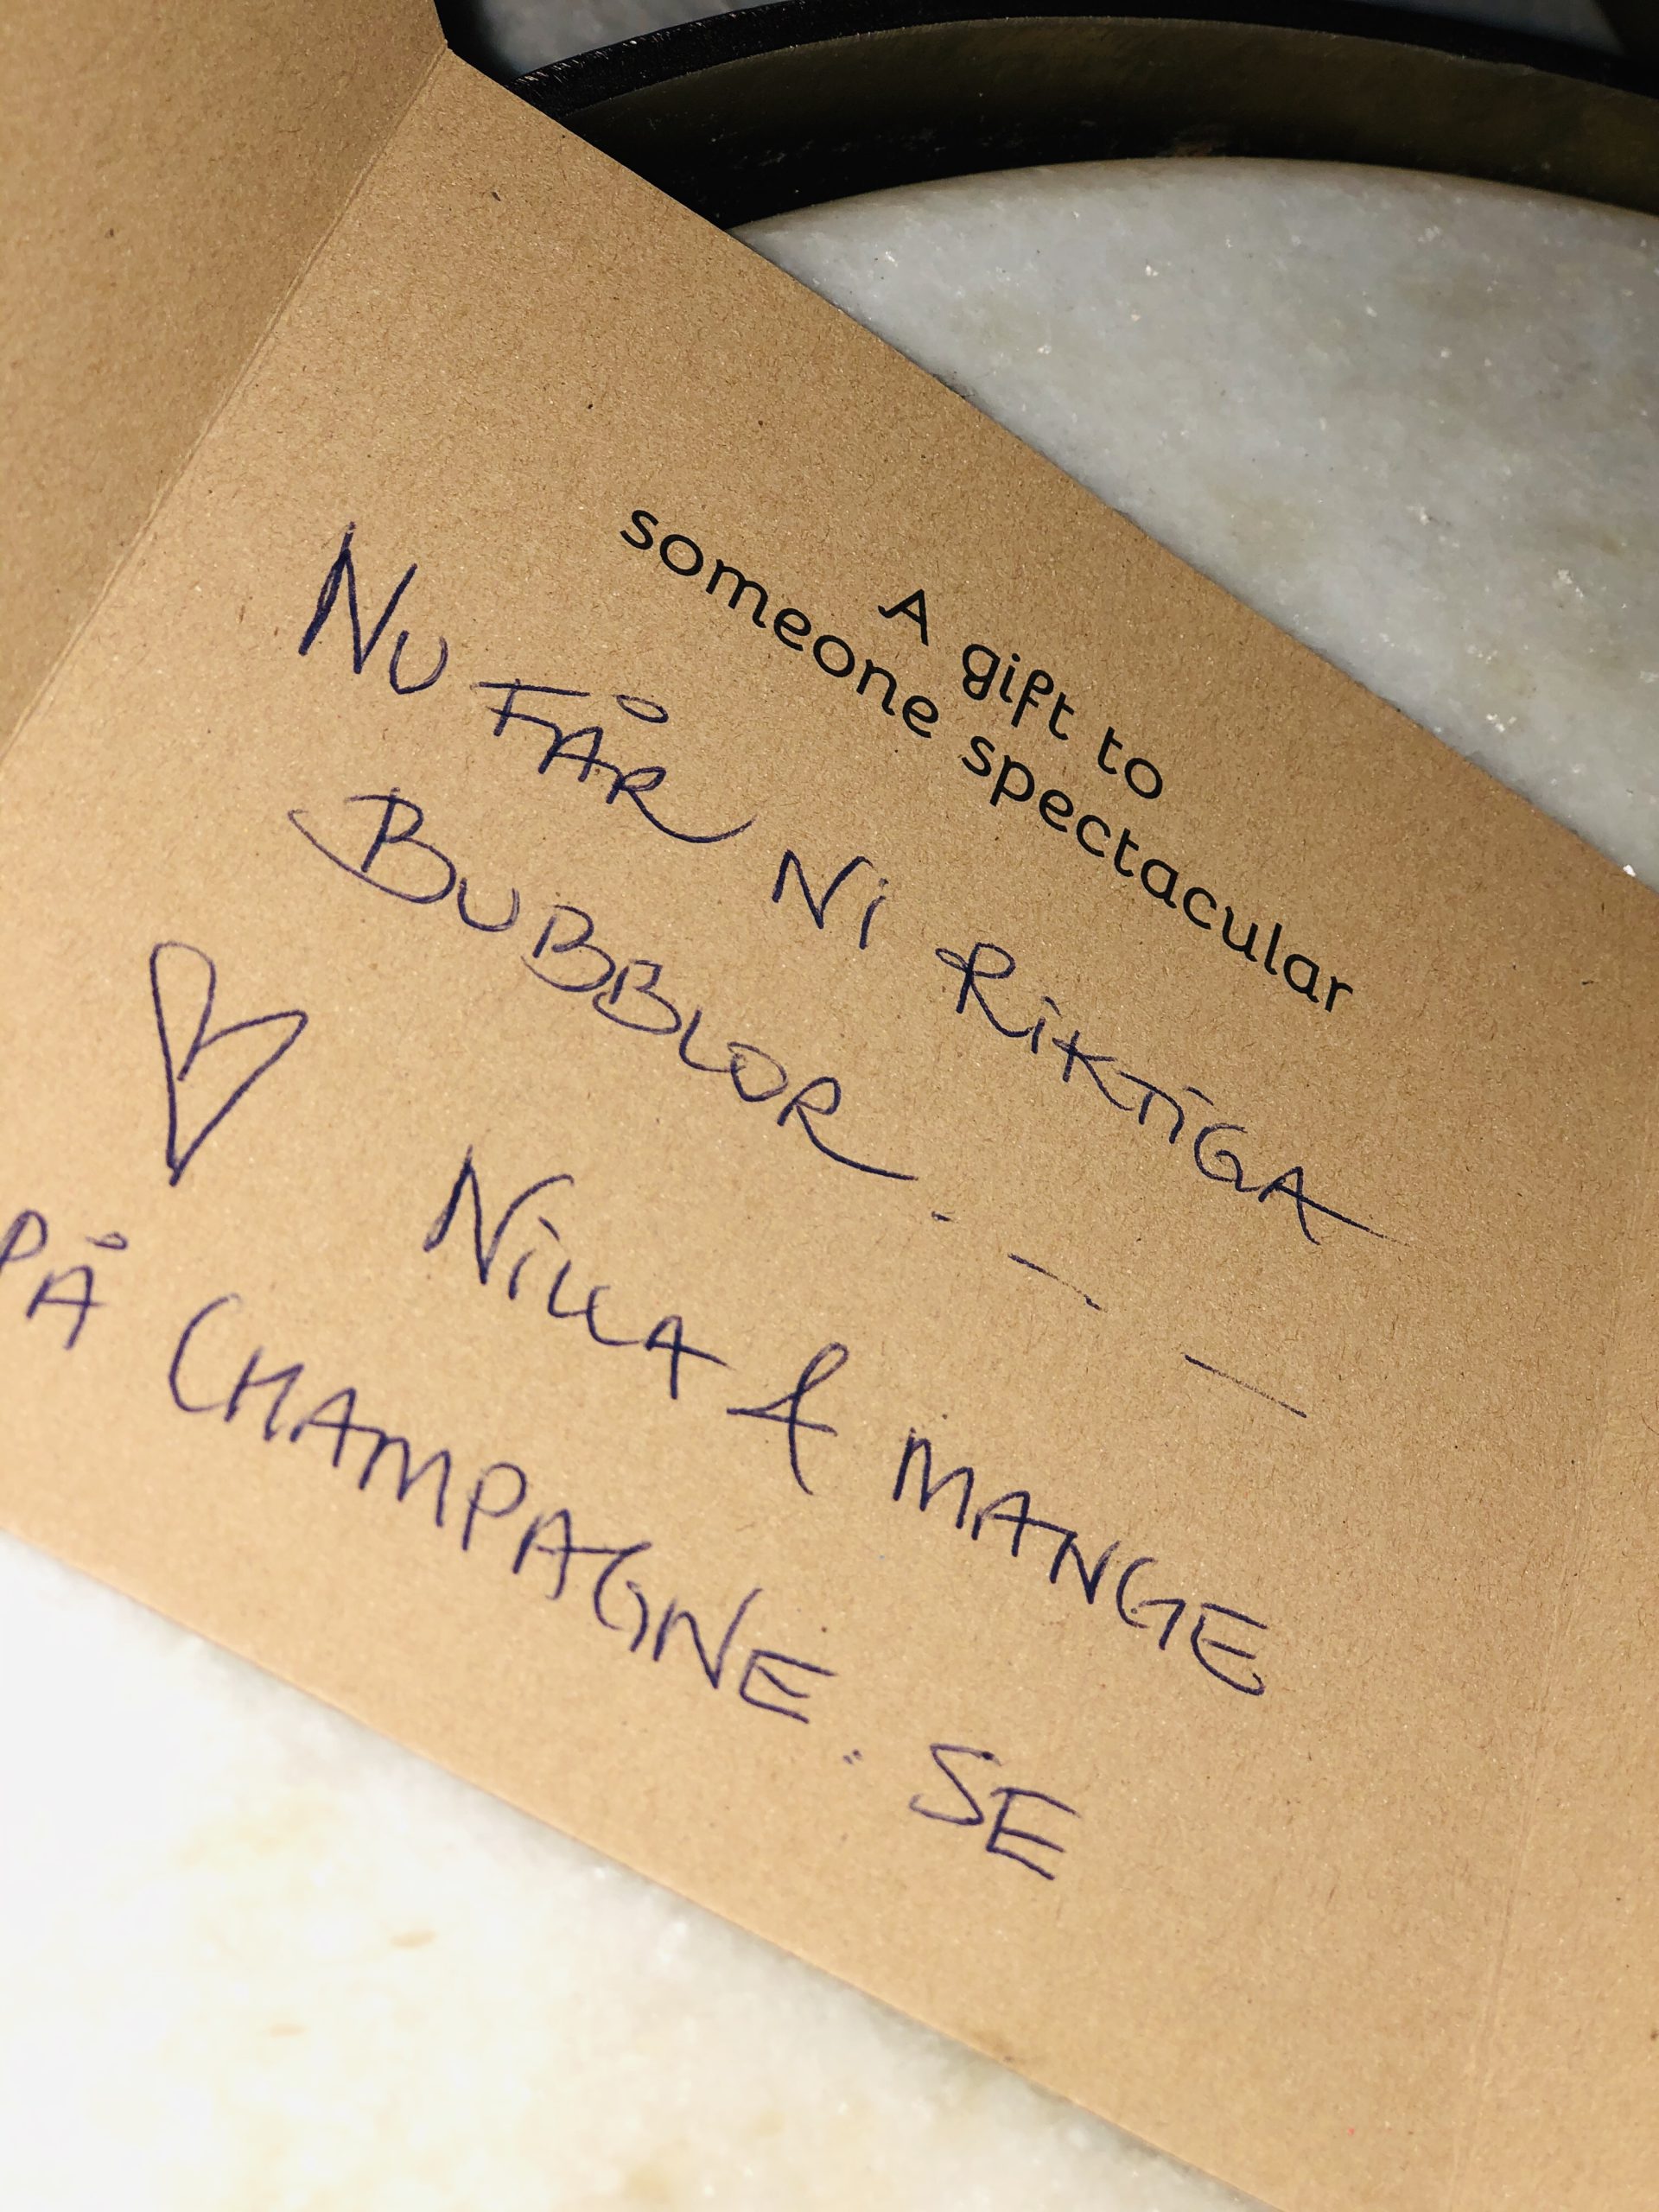 A gift to
someone spectacular
NU FÅR Ni RiKTiGA
BUBBLOR. — —
♡ NiLLA & MANGE
PÅ CHAMPAGNE.SE